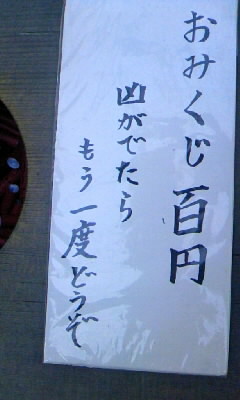 おみくじ百円
凶がでたら
もう一度どうぞ